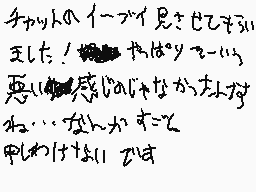 チャットの イーブイ 見させてもらい
ました! やっぱり そーいう
悪い 感じのじゃなかったよです
ね・・なんか すごく
申しわけない です